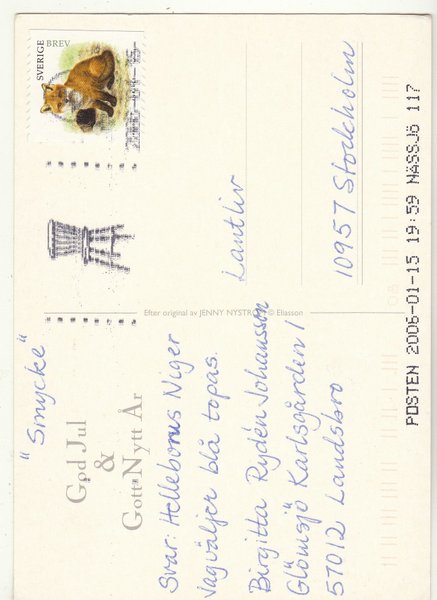 "Smycke"
God Jul
&
Gott Nytt År
Svar: Helleborus Niger
Jag väljer blå topas.
Birgitta Rydén Johansson
Glömsjö Karlsgården 1
57012 Landsbro
Efter original av JENNY NYSTRÖM © Eliasson
SVERIGE BREV
Lantliv
10957 Stockholm
POSTEN 2006-01-15 19:59 NÄSSJÖ 117